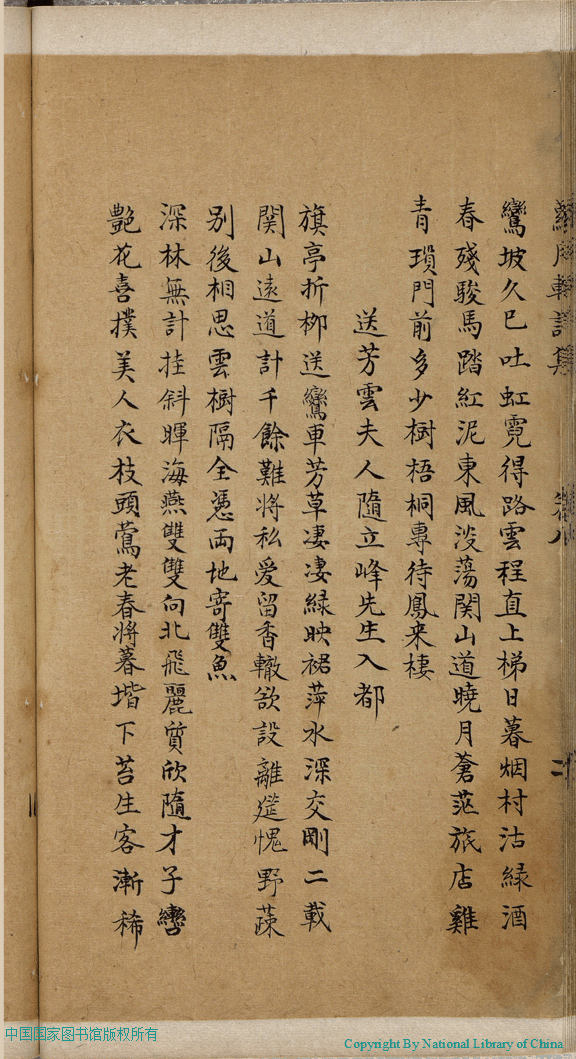 月軒詩集 卷八
鸞坡久已吐虹霓得路雲程直上梯日暮烟村沽緑酒
春殘駿馬踏紅泥東風淡蕩関山道曉月蒼茫旅店雞
青瑣門前多少樹梧桐專待鳳来棲
送芳雲夫人隨立峰先生入都
旗亭折栁送鸞車芳草凄凄緑映裾萍水深交剛二載
関山遠道計千餘難将私愛留香轍欲設離筵愧野蔬
别後相思雲樹隔全憑両地寄雙魚
深林無計挂斜暉海燕雙雙向北飛麗質欣隨才子轡
艶花喜撲美人衣枝頭鶯老春将暮堦下苔生客漸稀
中国国家图书馆版权所有
Copyright By National Library of China